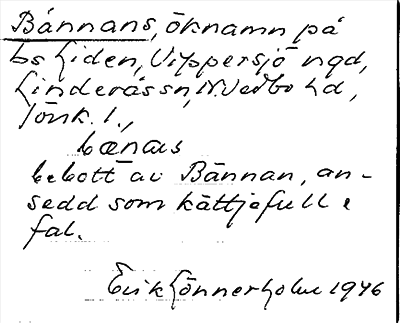 Bännans, öknamn på
bs Liden, Vippersjö ngd,
Linderås sn, N. Vedbo hd,
Jönk. l.,
bænas
bebott av Bännan, an-
sedd som kättjefull e
fal.
Erik Lönnerholm 1946